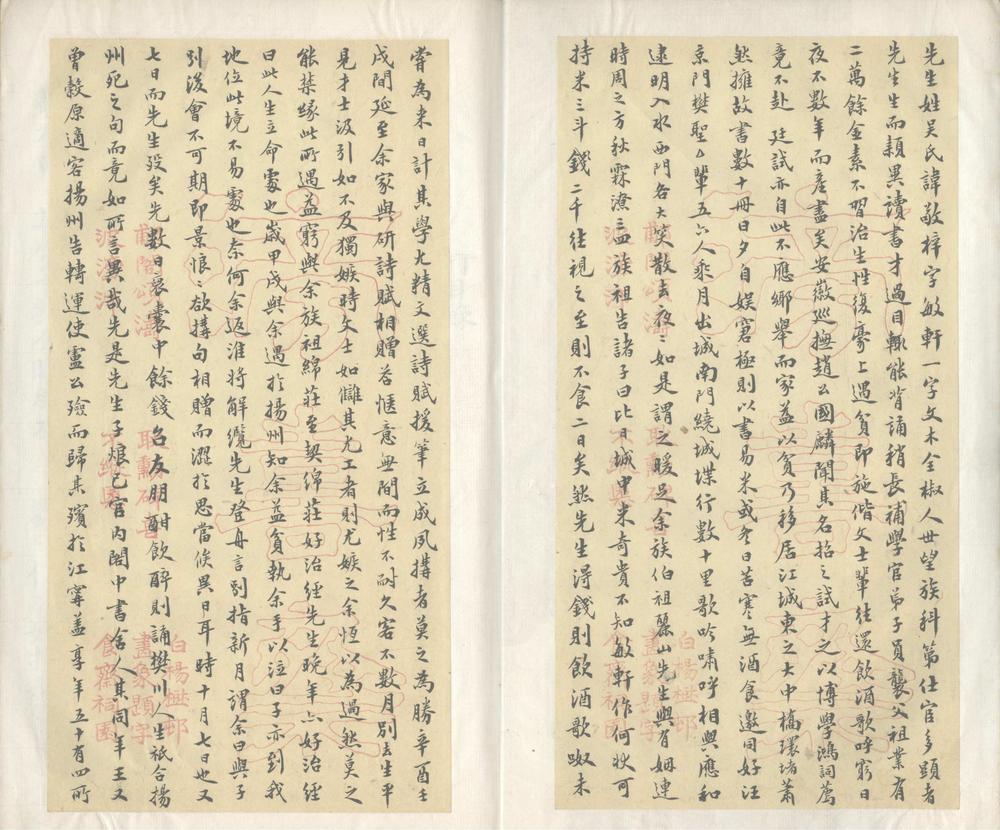 先生姓吳氏諱敬梓字敏軒一字文木全椒人世望族科第仕宦多顯者
先生生而穎異讀書才過目輒能背誦稍長補學官弟子員襲父祖業有
二萬餘金素不習治生性復豪上遇貧即施偕文士輩往還飲酒歌呼窮日
夜不數年而產盡矣安徽巡撫趙公國麟聞其名招之試才之以博學鴻詞薦
竟不赴 廷試亦自此不應鄉舉而家益以貧乃移居江城東之大中橋環堵蕭
然擁故書數十冊日夕自娛窘極則以書易米或冬日苦寒無酒食邀同好汪
京門樊聖厶輩五六人乘月出城南門繞城堞行數十里歌吟嘯呼相與應和
逮明入水西門各大笑散去夜〻如是謂之暖足余族伯祖麗山先生與有姻連
時周之方秋霖潦三四族祖告諸子曰比日城中米奇貴不知敏軒作何狀可
持米三斗錢二千往視之至則不食二日矣然先生得錢則飲酒歌呶未
嘗為來日計其學尤精文選詩賦援筆立成夙搆者莫之為勝辛酉壬
戌間延至余家與研詩賦相贈荅愜意無間而性不耐久客不數月別去生平
見才士汲引如不及獨嫉時文士如讎其尤工者則尤嫉之余恆以為過然莫之
能禁緣此所遇益窮與余族祖綿莊至契綿莊好治經先生晚年亦好治經
曰此人生立命處也歲甲戌與余遇於揚州知余益貧執余手以泣曰子亦到我
地位此境不易處也奈何余返淮將解纜先生登舟言別指新月謂余曰與子
別後會不可期即景悵〻欲搆句相贈而澀於思當俟異日耳時十月七日也又
七日而先生歿矣先數日裒囊中餘錢召友朋酣飲醉則誦樊川人生祇合揚
州死之句而竟如所言異哉先是先生子烺已官內閣中書舍人其同年王又
曾轂原適客揚州告轉運使盧公殮而歸其殯於江寧蓋享年五十有四所